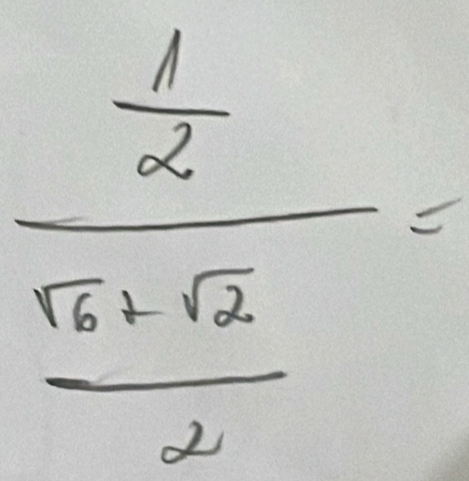 1
2
=
√6 + √2
2